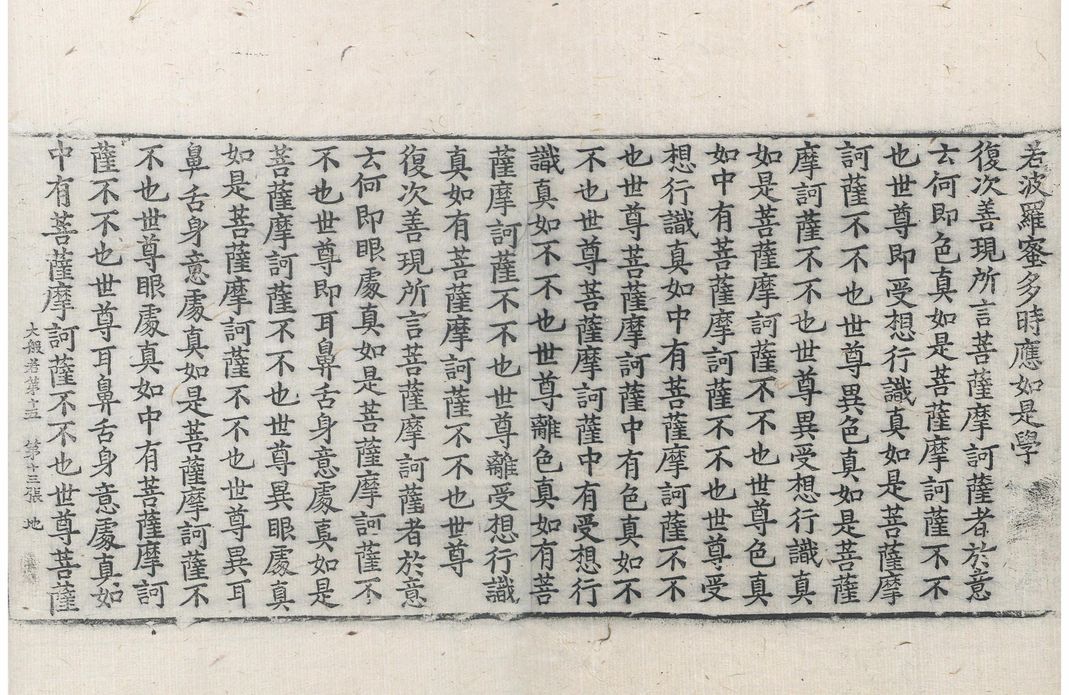 若波羅蜜多時應如是學
復次善現所言菩薩摩訶薩者於意
云何即色真如是菩薩摩訶薩不不
也世尊即受想行識真如是菩薩摩
訶薩不不也世尊異色真如是菩薩
摩訶薩不不也世尊異受想行識真
如是菩薩摩訶薩不不也世尊色真
如中有菩薩摩訶薩不不也世尊受
想行識真如中有菩薩摩訶薩不不
也世尊菩薩摩訶薩中有色真如不
不也世尊菩薩摩訶薩中有受想行
識真如不不也世尊離色真如有菩
薩摩訶薩不不也世尊離受想行識
真如有菩薩摩訶薩不不也世尊
復次善現所言菩薩摩訶薩者於意
云何即眼處真如是菩薩摩訶薩不
不也世尊即耳鼻舌身意處真如是
菩薩摩訶薩不不也世尊異眼處真
如是菩薩摩訶薩不不也世尊異耳
鼻舌身意處真如是菩薩摩訶薩不
不也世尊眼處真如中有菩薩摩訶
薩不不也世尊耳鼻舌身意處真如
中有菩薩摩訶薩不不也世尊菩薩
大般若第十五 第廿三張 地